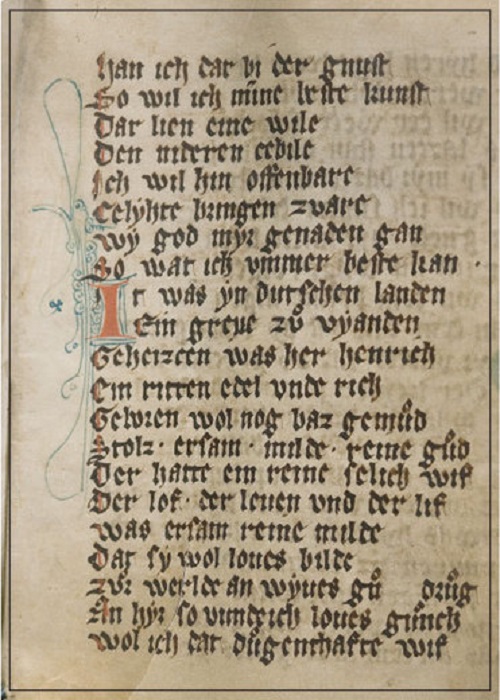 Han ich dar bi der gnust
So wil ich mine beste kunst
Dar lien eine wile
Den nideren cedile
Ich wil hin offenbare
Celyhte bringen zvare
wy god myr genaden gan
So war ich vmmer beste kan ·
Ir was yn dutschen landen
Ein greue zů vyanden
Geheizcen was her henrich
Ein ritter edel vnde rich
Geboren wol nog baz gemůd
Stolz · ersam · milde · reine gůd
Der hatte ein reine selich wif
Der lof · der leuen vnd der lif
was ersam reine milde
Daz sy wol loues bilde
zvr werlde an wyues gů drůg
An hyr so vunde ich loues gůnch
wol ich daz důgenthafte wif